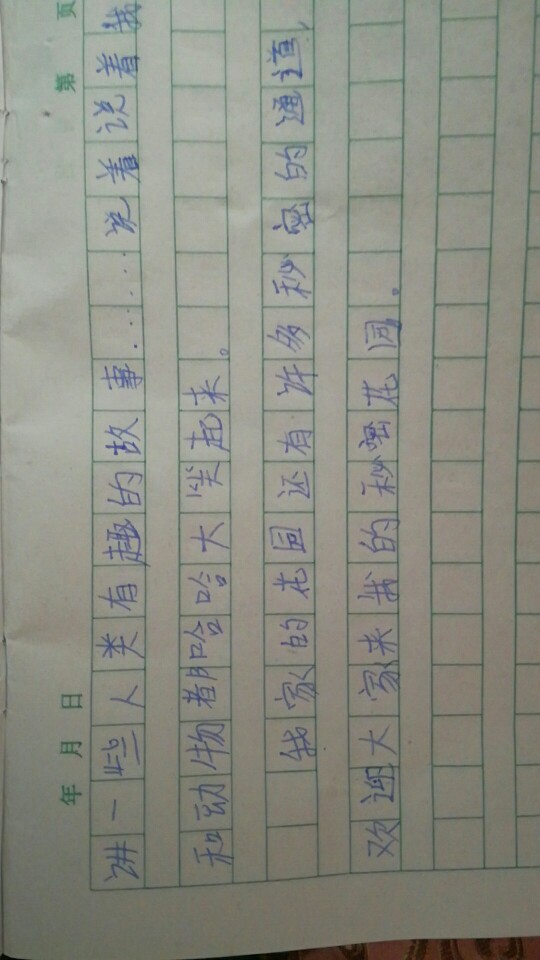 年 月 日 第 页
讲一些人类有趣的故事……说着说着我
和动物都哈哈大笑起来。
我家的花园还有许多秘密的通道,
欢迎大家来我的秘密花园。